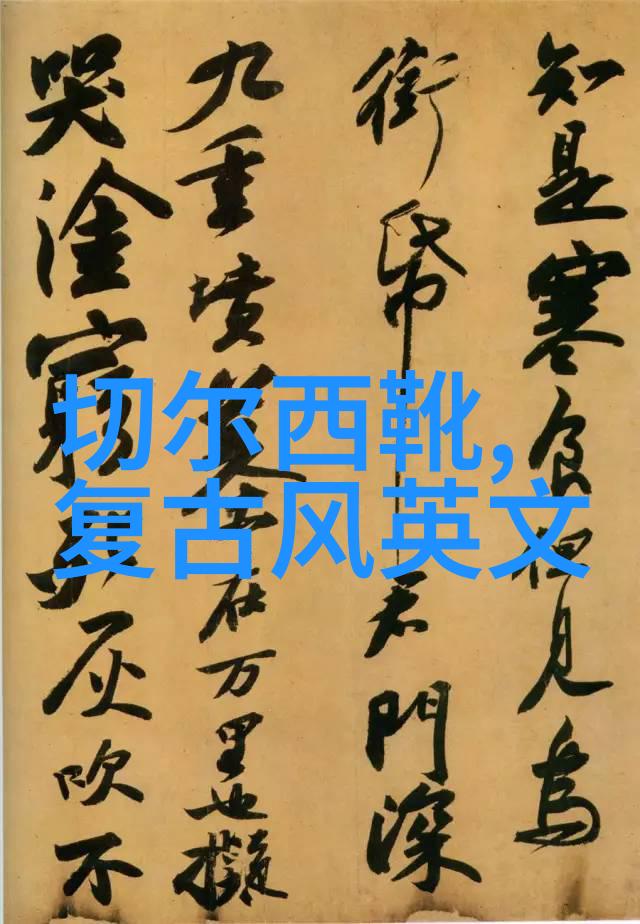 知是寒食但見烏
銜帋君門深
九重墳墓在万里也擬
哭塗窮死灰吹不
切尔西靴,
复古风英文